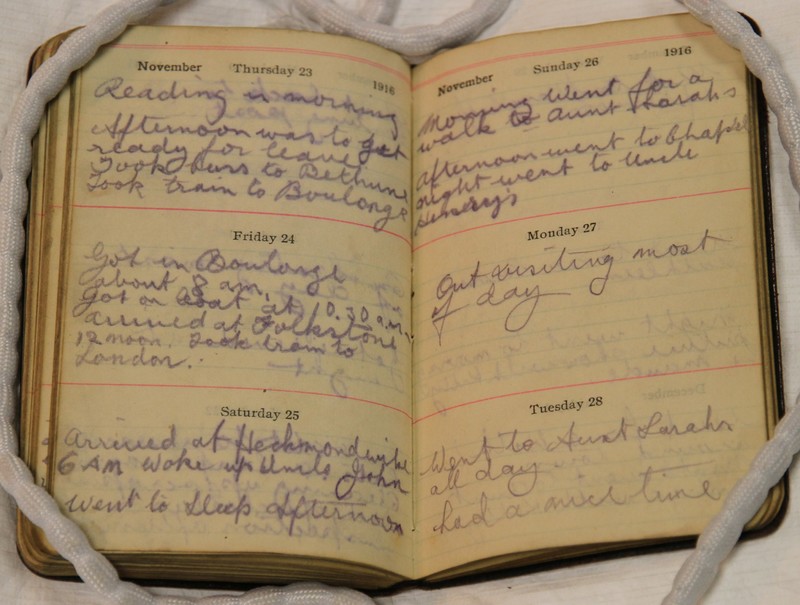 November Thursday 23 1916
Reading in morning
Afternoon was to get
ready for leave
Took buss to Bethune
Took train to Boulonge
Friday 24
Got in Boulonge
about 8 am.
Got on boat at 10.30 a.m.
arrived at Folkstone
12 noon. Took train to
London.
Saturday 25
Arrived at Heckmondwike
6 AM Woke up Uncle John
Went to sleep afternoon
November Sunday 26 1916
Morning Went for a
walk to Aunt Sharahs
Afternoon went to Chapel
night went to Uncle
Henery's
Monday 27
Out visiting most
of day
Tuesday 28
Went to Aunt Sarahs
all day
had a nice time